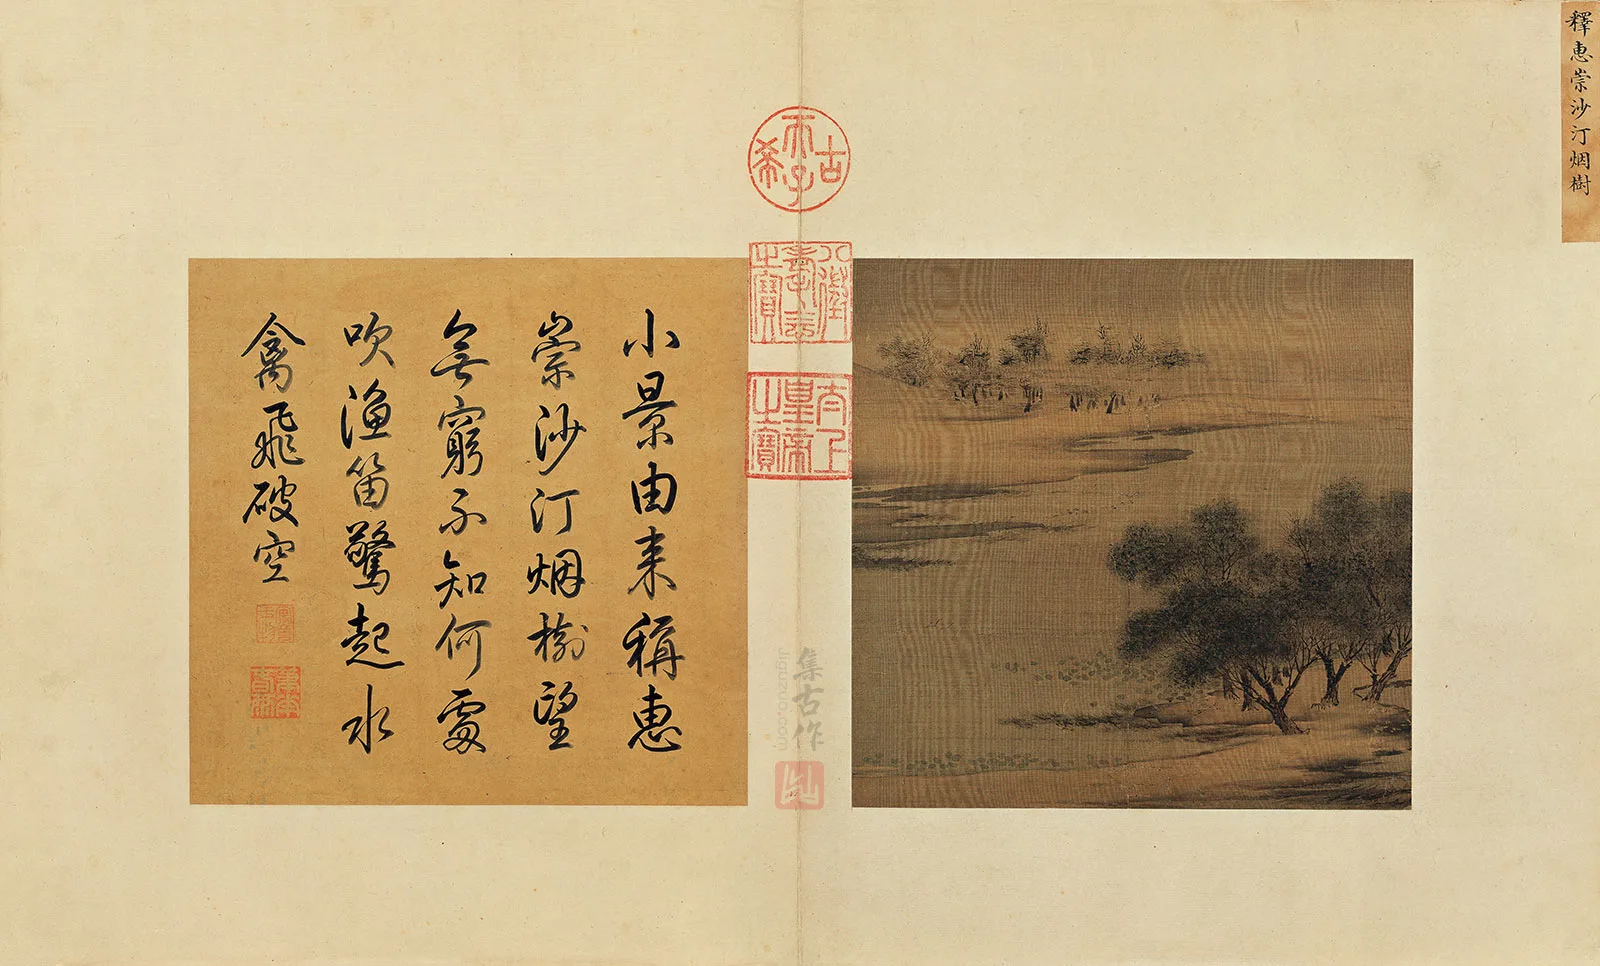 釋惠崇沙汀烟樹
古希天子
八徵耄念之寶
太上皇帝之寶
小景由来稱惠
崇沙汀烟樹望
無窮不知何處
吹漁笛驚起水
禽飛破空
集古作
Jiguzuo.com